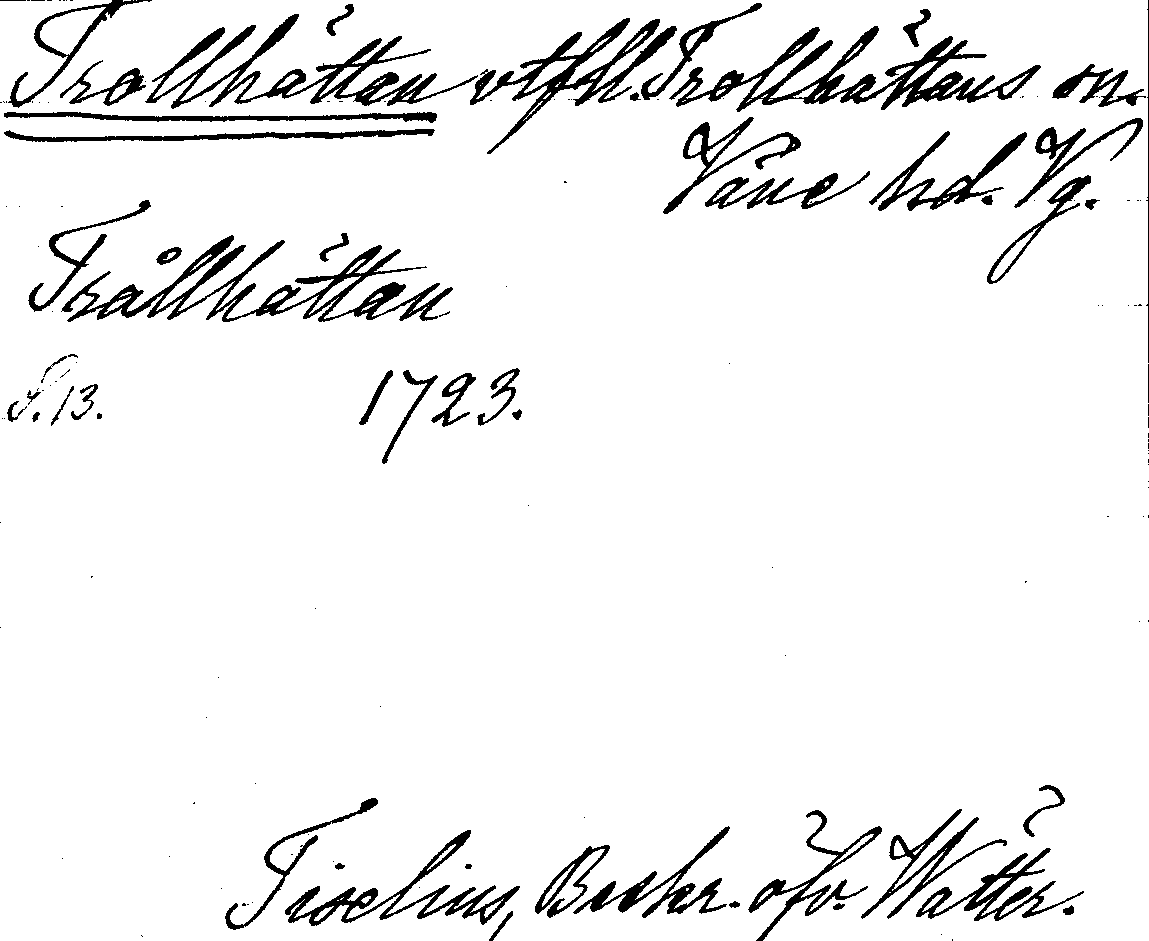 Trollhättan vtfll. Trollhättans sn.
Väne hd. Vg.
Trållhättan
S. 13. 1723.
Tiselius, Beskr. öfv. Wätter.